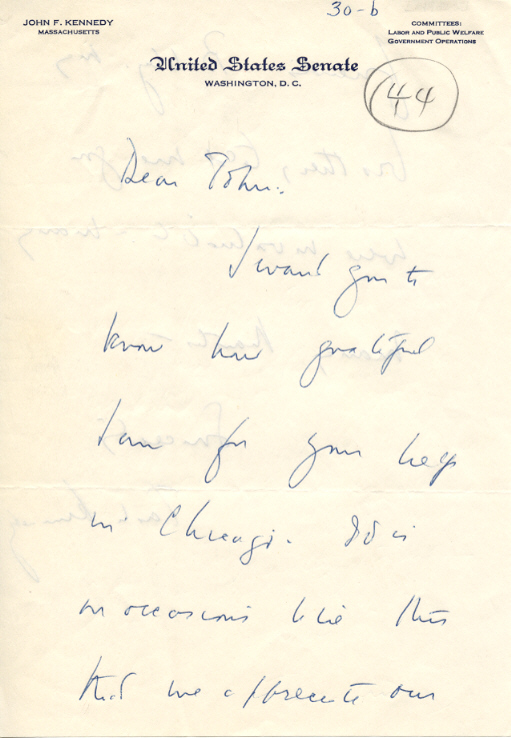 30-b
JOHN F. KENNEDY
MASSACHUSETTS
COMMITTEES:
LABOR AND PUBLIC WELFARE
GOVERNMENT OPERATIONS
United States Senate
WASHINGTON, D. C.
44
Dear John:
I want you to
know how grateful
I am for your help
in Chicago. It is
on occasions like this
that we appreciate our